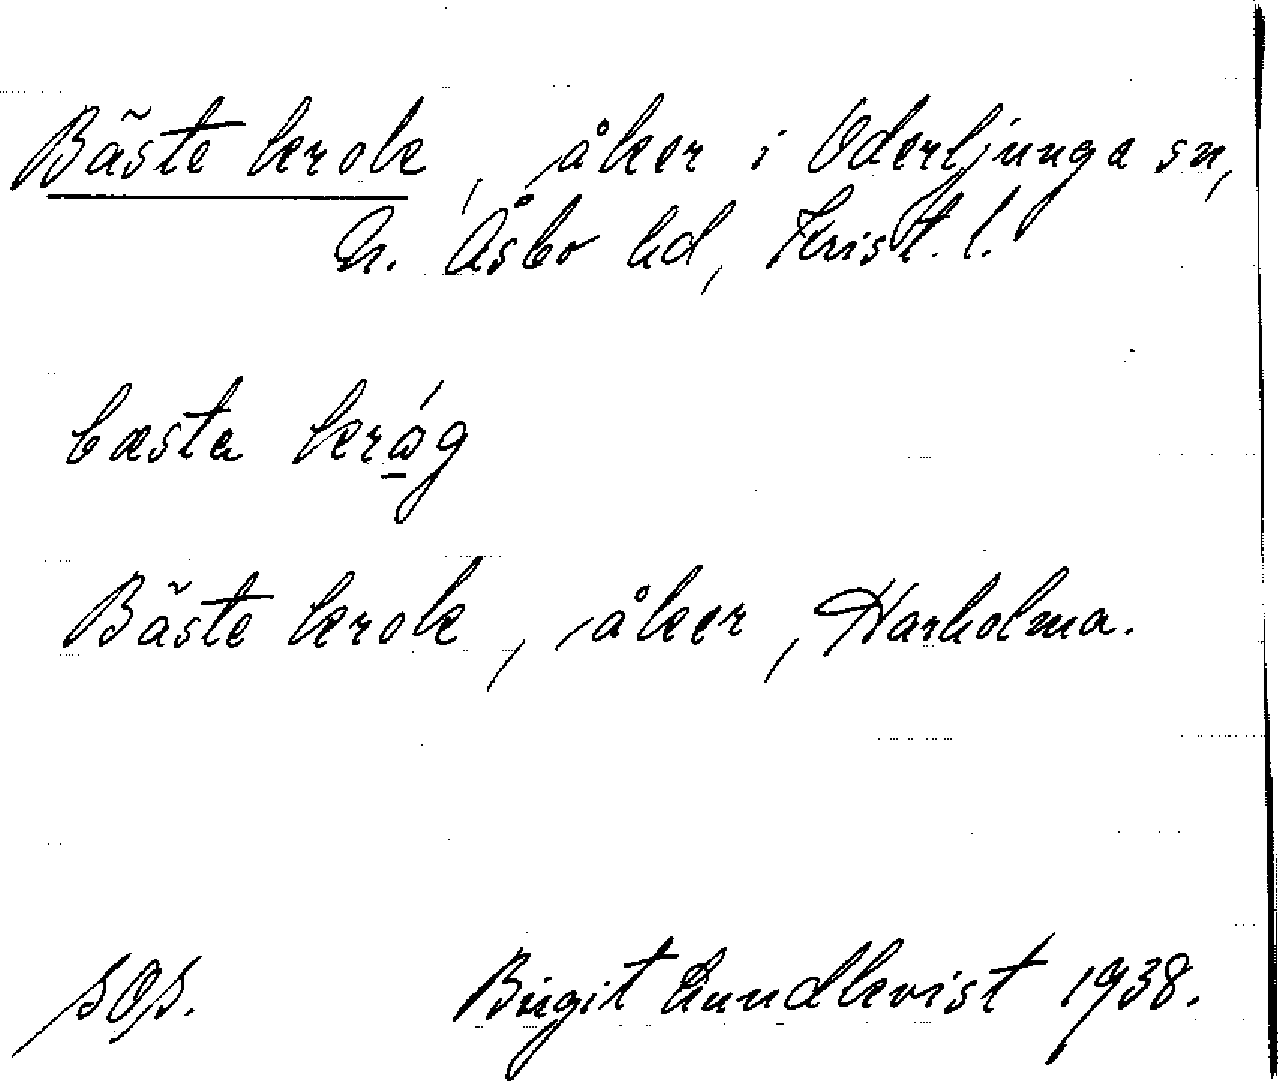 Bäste krok, åker i Oderljunga sn,
N. Åsbo hd, Krist. l.
bæsta krág
Bäste krok, åker, Harholma.
sOs. Birgit Lundkvist 1938.